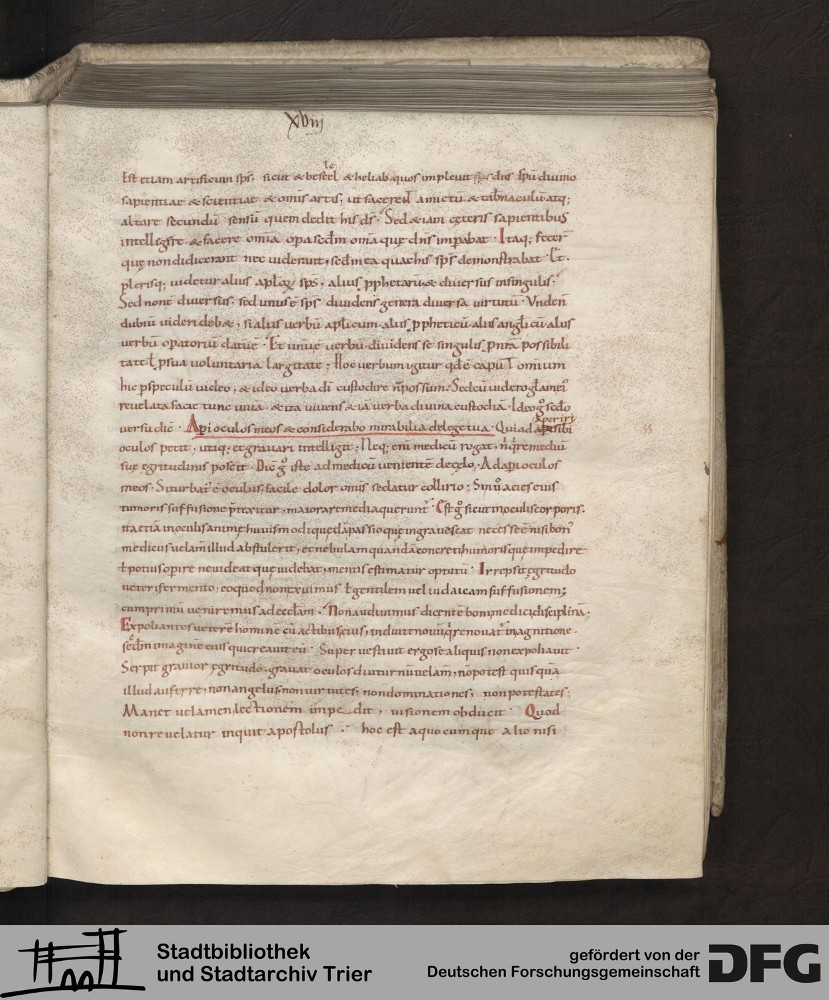 XVIII
Est etiam artificum sps, sicut & beseel & heliab quos impleuit dns spu diuino
sapientiae & scientiae & omis artis, ut facerent amictu & tabnaculu atq;
altare secundu sensu quem dedit his ds. Sed & iam ceteris sapientibus
intellegere & facere omia opa scdm omia quę dns impabat. Itaq; fecer
quę non didicerant nec uiderant, sed in ea quae his sps demonstrabat. Et
plerisq; uidetur alius aplor sps, alius pphetaru & diuersus in singulis.
Sed non e diuersus, sed unus e sps diuidens genera diuersa uirtutu. Vnde n
dubiu uideri deb&, si alius uerbu aplicum alius ppheticu alius angli cu alius
uerbu operatoriu datu e. Et unu e uerbu diuidens se singulis p nra possibili
tate t p sua uoluntaria largitate; Hoc uerbum igitur qd e caput omnium
hic p speculu uideo, & ideo uerba di custodire n possum. Sed cu uidero gla mei
reuelata facie tunc uiua & ita uiuens & ia uerba diuina custodia. Ideo g scdo
uersu dic. Api oculos meos & considerabo mirabilia de lege tua. Qui adapiri sibi
oculos petit, utiq; & grauari intelligit. Neq; eni medicu rogat, n q remediu
suę egritudinis poscit. Dic g iste ad medicu ueniente de cęlo, Adapi oculos
meos. Si turbat e oculus, facile dolor omis sedatur collirio; Si u acies eius
tumoris suffusione ptexitur, maiora remedia querunt. Est g sicut in oculis corporis.
ita etia in oculis animę huiusmodi quęda passio quę ingrauescat necesse e nisi bon
medicus uelam illud abstulerit, et nebulam quanda concreti humoris quę impedire
t potius opire ne uideat quę uidebat, menus estimatur optutu. Irrepsit ęgritudo
ueteris fermento, eo quod non exuimus t gentilem uel iudaicam suffusionem,
cum primu uenire mus ad ecclam. Non audiuimus dicente boni medici disciplina.
Expoliantes uetere homine cu actibus eius, induite nouu, q renouat in agnitione.
scdm imagine eius qui creauit eu. Superuestiuit ergo se aliquis non expoliauit.
Serpit grauior ęgritudo, grauat oculos diuturnu uelam, n potest quisqua
illud auferre, non angelus non uirtutes, non dominationes, non potestates;
Manet uelamen, lectionem impedit, uisionem obducit. Quod
non reuelatur inquit apostolus. hoc est a quocumque alio nisi
Stadtbibliothek
und Stadtarchiv Trier
gefördert von der
Deutschen Forschungsgemeinschaft
DFG